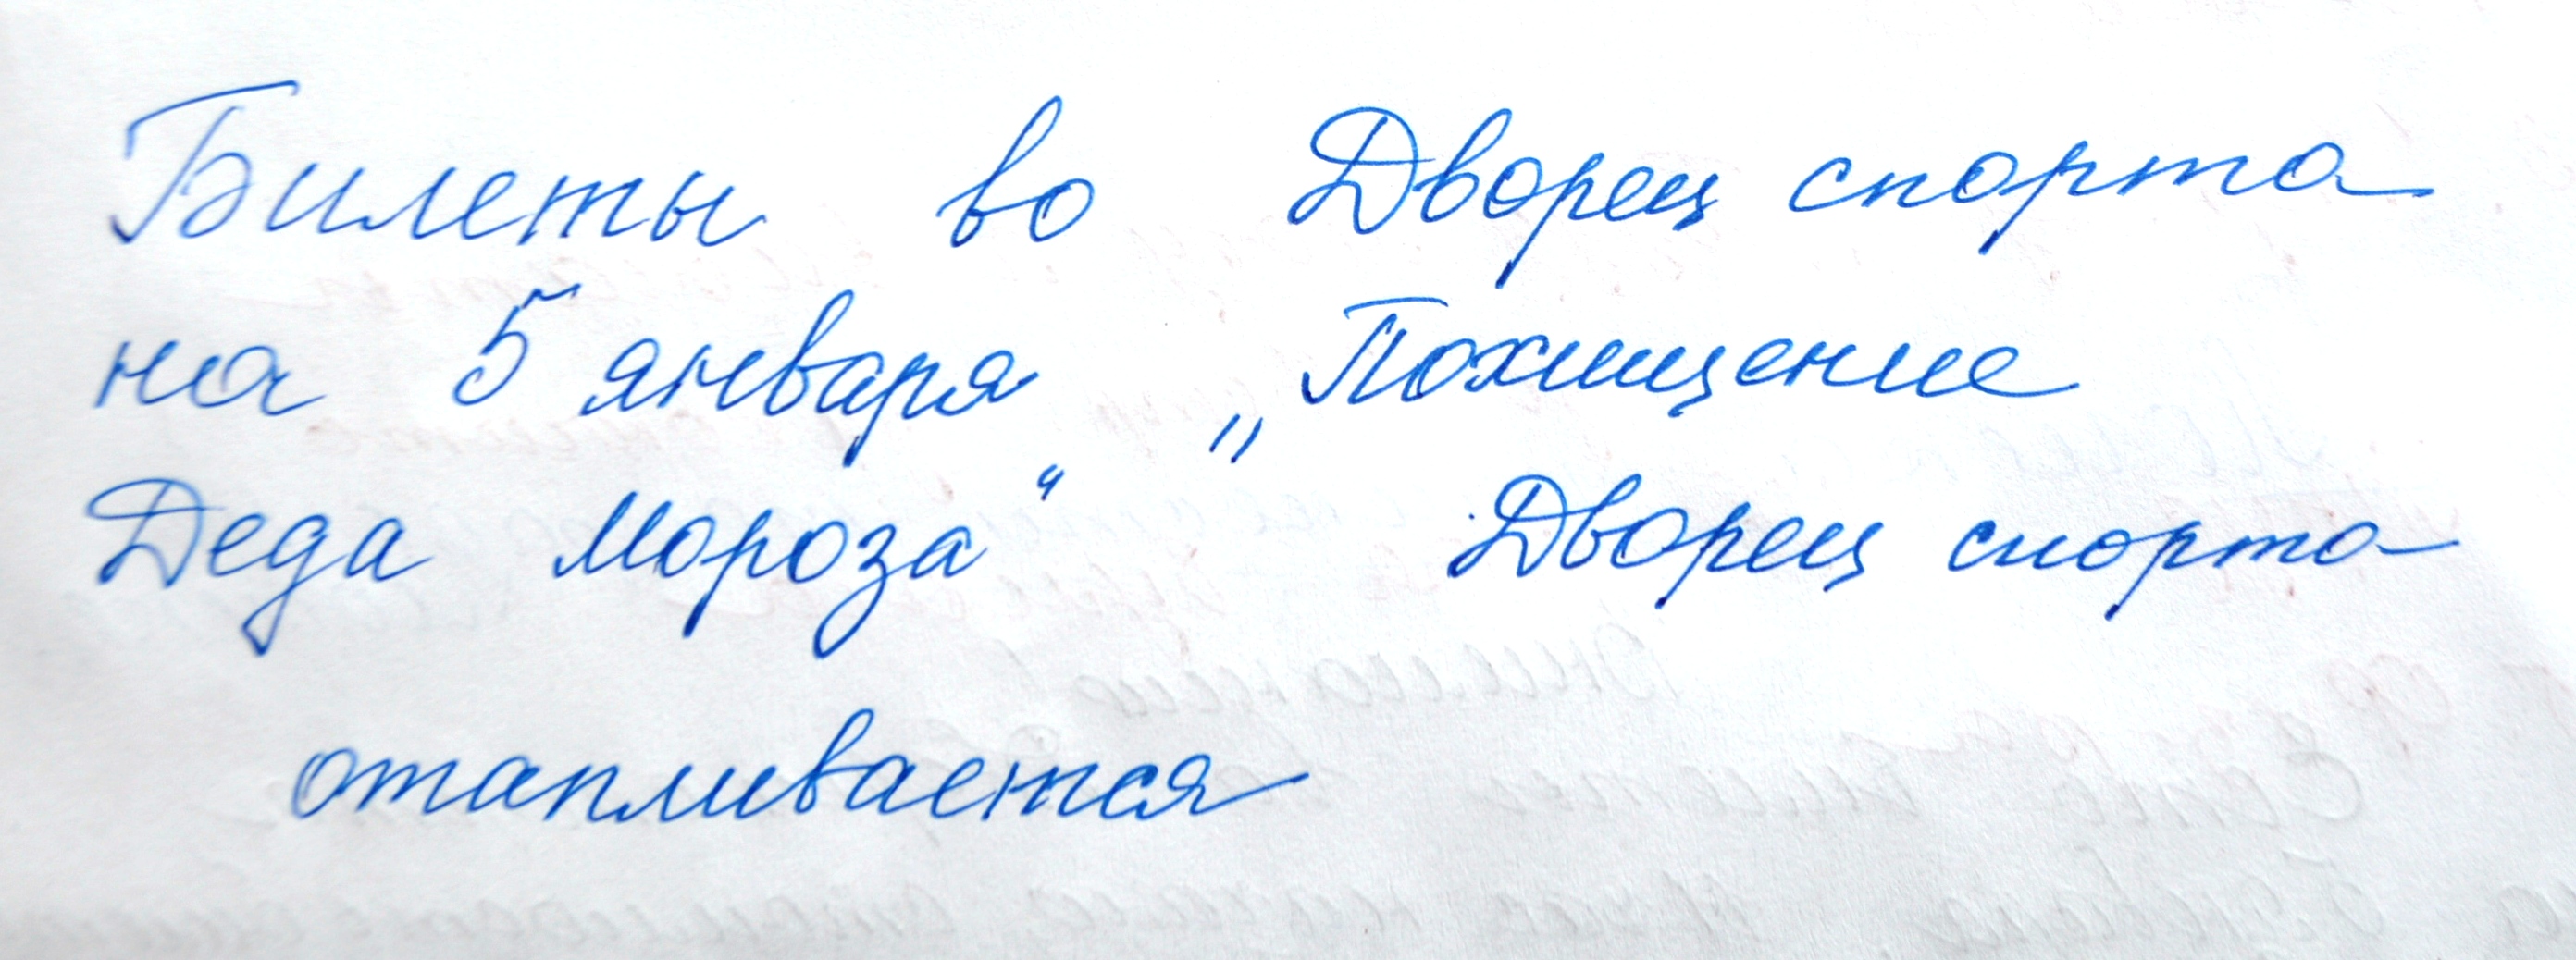 Билеты во Дворец спорта
на 5 января „Похищение
Деда Мороза“ Дворец спорта
отапливается